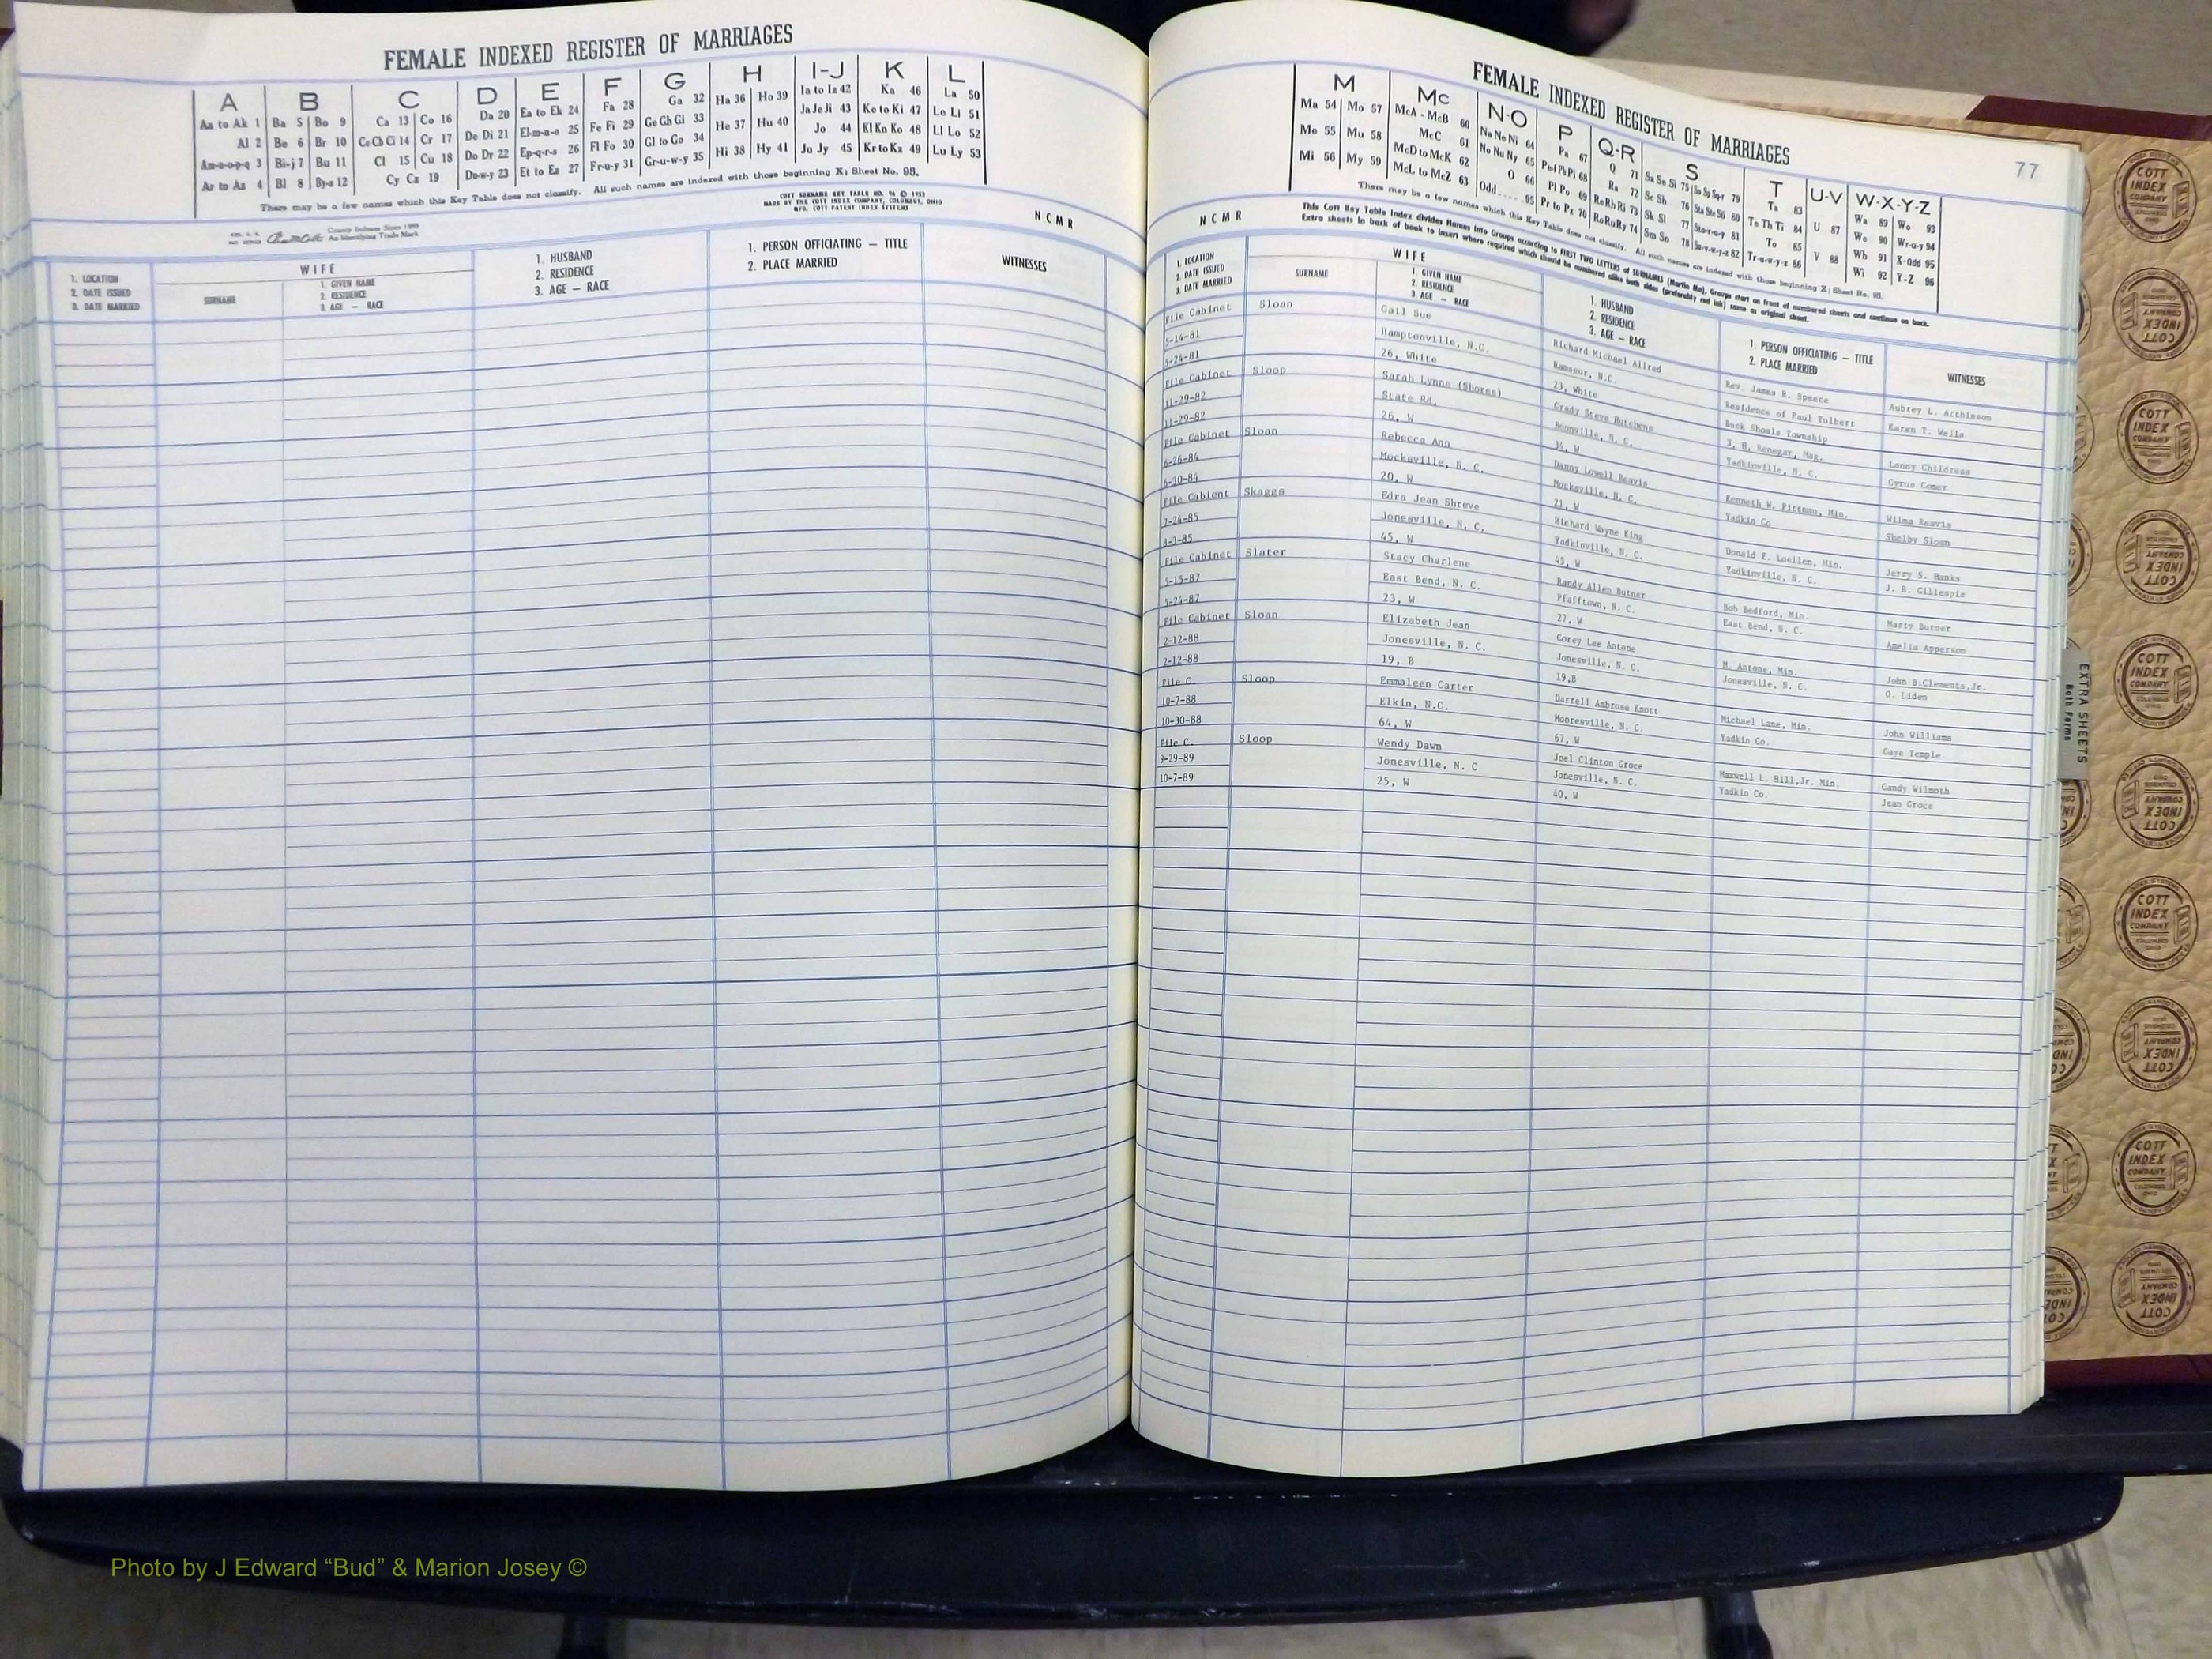 FEMALE INDEXED REGISTER OF MARRIAGES
A B C D E F G H I-J K L
Aa to Ak 1 Ba 5 Bo 9 Ca 13 Co 16 Da 20 Ea to Ek 24 Fa 28 Ga 32 Ha 36 Ho 39 Ia to Iz 42 Ka 46 La 50
Al 2 Be 6 Br 10 Ce Ch Ci 14 Cr 17 De Di 21 El-m-n-o 25 Fe Fi 29 Ge Gh Gi 33 He 37 Hu 40 Ja Je Ji 43 Ke to Ki 47 Le Li 51
Am-n-o-p-q 3 Bi-j 7 Bu 11 Cl 15 Cu 18 Do Dr 22 Ep-q-r-s 26 Fl Fo 30 Gl to Go 34 Hi 38 Hy 41 Jo 44 Kl Kn Ko 48 Ll Lo 52
Ar to Az 4 Bl 8 By-z 12 Cy Cz 19 Du-w-y 23 Et to Ez 27 Fr-u-y 31 Gr-u-w-y 35 Ju Jy 45 Kr to Kz 49 Lu Ly 53
There may be a few names which this Key Table does not classify. All such names are indexed with those beginning X; Sheet No. 95.
COTT SURNAME KEY TABLE NO. 96 © 1953
MADE BY THE COTT INDEX COMPANY, COLUMBUS, OHIO
MFG. COTT PATENT INDEX SYSTEMS
County Indexes Since 1888
An Identifying Trade Mark
NCMR
1. LOCATION
2. DATE ISSUED
3. DATE MARRIED
WIFE
SURNAME
1. GIVEN NAME
2. RESIDENCE
3. AGE — RACE
1. HUSBAND
2. RESIDENCE
3. AGE — RACE
1. PERSON OFFICIATING — TITLE
2. PLACE MARRIED
WITNESSES
FEMALE INDEXED REGISTER OF MARRIAGES
77
M Mc N-O P Q-R S T U-V W-X-Y-Z
Ma 54 Mo 57 McA - McB 60 Na Ne Ni 64 Pa 67 Q 71 Sa Se Si 75 Sn So Sp-r 79 Ta 83 U 87 Wa 89 Wo 93
Me 55 Mu 58 McC 61 No Nu Ny 65 Pe-f Ph Pi 68 Ra 72 Sc Sh 76 Sta Ste Sti 80 Te Th Ti 84 V 88 We 90 Wr-u-y 94
Mi 56 My 59 McD to McK 62 O 66 Pl Po 69 Re Rh Ri 73 Sk Sl 77 Sto-r-u-y 81 To 85 Wh 91 X-Odd 95
McL to McZ 63 Odd 95 Pr to Pz 70 Ro Ru Ry 74 Sm Sn 78 Su-v-w-y-z 82 Tr-u-w-y-z 86 Wi 92 Y-Z 96
There may be a few names which this Key Table does not classify. All such names are indexed with those beginning X; Sheet No. 95.
This Cott Key Table Index divides Names into Groups according to FIRST TWO LETTERS of SURNAMES (Martin Ma). Groups start on front of numbered sheets and continue on back.
Extra sheets in back of book to insert where required which should be numbered alike both sides (preferably red ink) same as original sheet.
NCMR
1. LOCATION
2. DATE ISSUED
3. DATE MARRIED
WIFE
SURNAME
1. GIVEN NAME
2. RESIDENCE
3. AGE — RACE
1. HUSBAND
2. RESIDENCE
3. AGE — RACE
1. PERSON OFFICIATING — TITLE
2. PLACE MARRIED
WITNESSES
File Cabinet Sloan Gail Sue Richard Michael Allred Rev. James R. Speece Aubrey L. Atchinson
5-14-81 Hamptonville, N.C. Ramseur, N.C. Residence of Paul Tulbert Karen T. Wells
5-24-81 26, White 23, White Buck Shoals Township
File Cabinet Sloop Sarah Lynne (Shores) Grady Steve Hutchens J. H. Renegar, Mag. Lanny Childress
11-29-82 State Rd. Boonville, N. C. Yadkinville, N. C. Cyrus Comer
11-29-82 26, W 34, W
File Cabinet Sloan Rebecca Ann Danny Lowell Reavis Kenneth W. Pittman, Min. Wilma Reavis
6-26-84 Mocksville, N. C. Mocksville, N. C. Yadkin Co Shelby Sloan
6-30-84 20, W 21, W
File Cabient Skaggs Edra Jean Shreve Richard Wayne King Donald E. Loellen, Min. Jerry S. Hanks
7-24-85 Jonesville, N. C. Yadkinville, N. C. Yadkinville, N. C. J. B. Gillespie
8-3-85 45, W 45, W
File Cabinet Slater Stacy Charlene Randy Allen Butner Bob Bedford, Min. Marty Butner
5-15-87 East Bend, N. C. Pfafftown, N. C. East Bend, N. C. Amelia Apperson
5-24-87 23, W 27, W
File Cabinet Sloan Elizabeth Jean Corey Lee Antone M. Antone, Min. John B.Clements,Jr.
2-12-88 Jonesville, N. C. Jonesville, N. C. Jonesville, N. C. O. Liden
2-12-88 19, B 19,B
File C. Sloop Emmaleen Carter Darrell Ambrose Knott Michael Lane, Min. John Williams
10-7-88 Elkin, N.C. Mooresville, N. C. Yadkin Co. Gaye Temple
10-30-88 64, W 67, W
File C. Sloop Wendy Dawn Joel Clinton Groce Maxwell L. Hill,Jr. Min. Candy Wilmoth
9-29-89 Jonesville, N. C Jonesville, N. C. Yadkin Co. Jean Groce
10-7-89 25, W 40, W
EXTRA SHEETS
Both Forms
COTT INDEX COMPANY
COTT INDEX COMPANY
COTT INDEX COMPANY
COTT INDEX COMPANY
COTT INDEX COMPANY
COTT INDEX COMPANY
COTT INDEX COMPANY
COTT INDEX COMPANY
COTT INDEX COMPANY
COTT INDEX COMPANY
Photo by J Edward “Bud” & Marion Josey ©